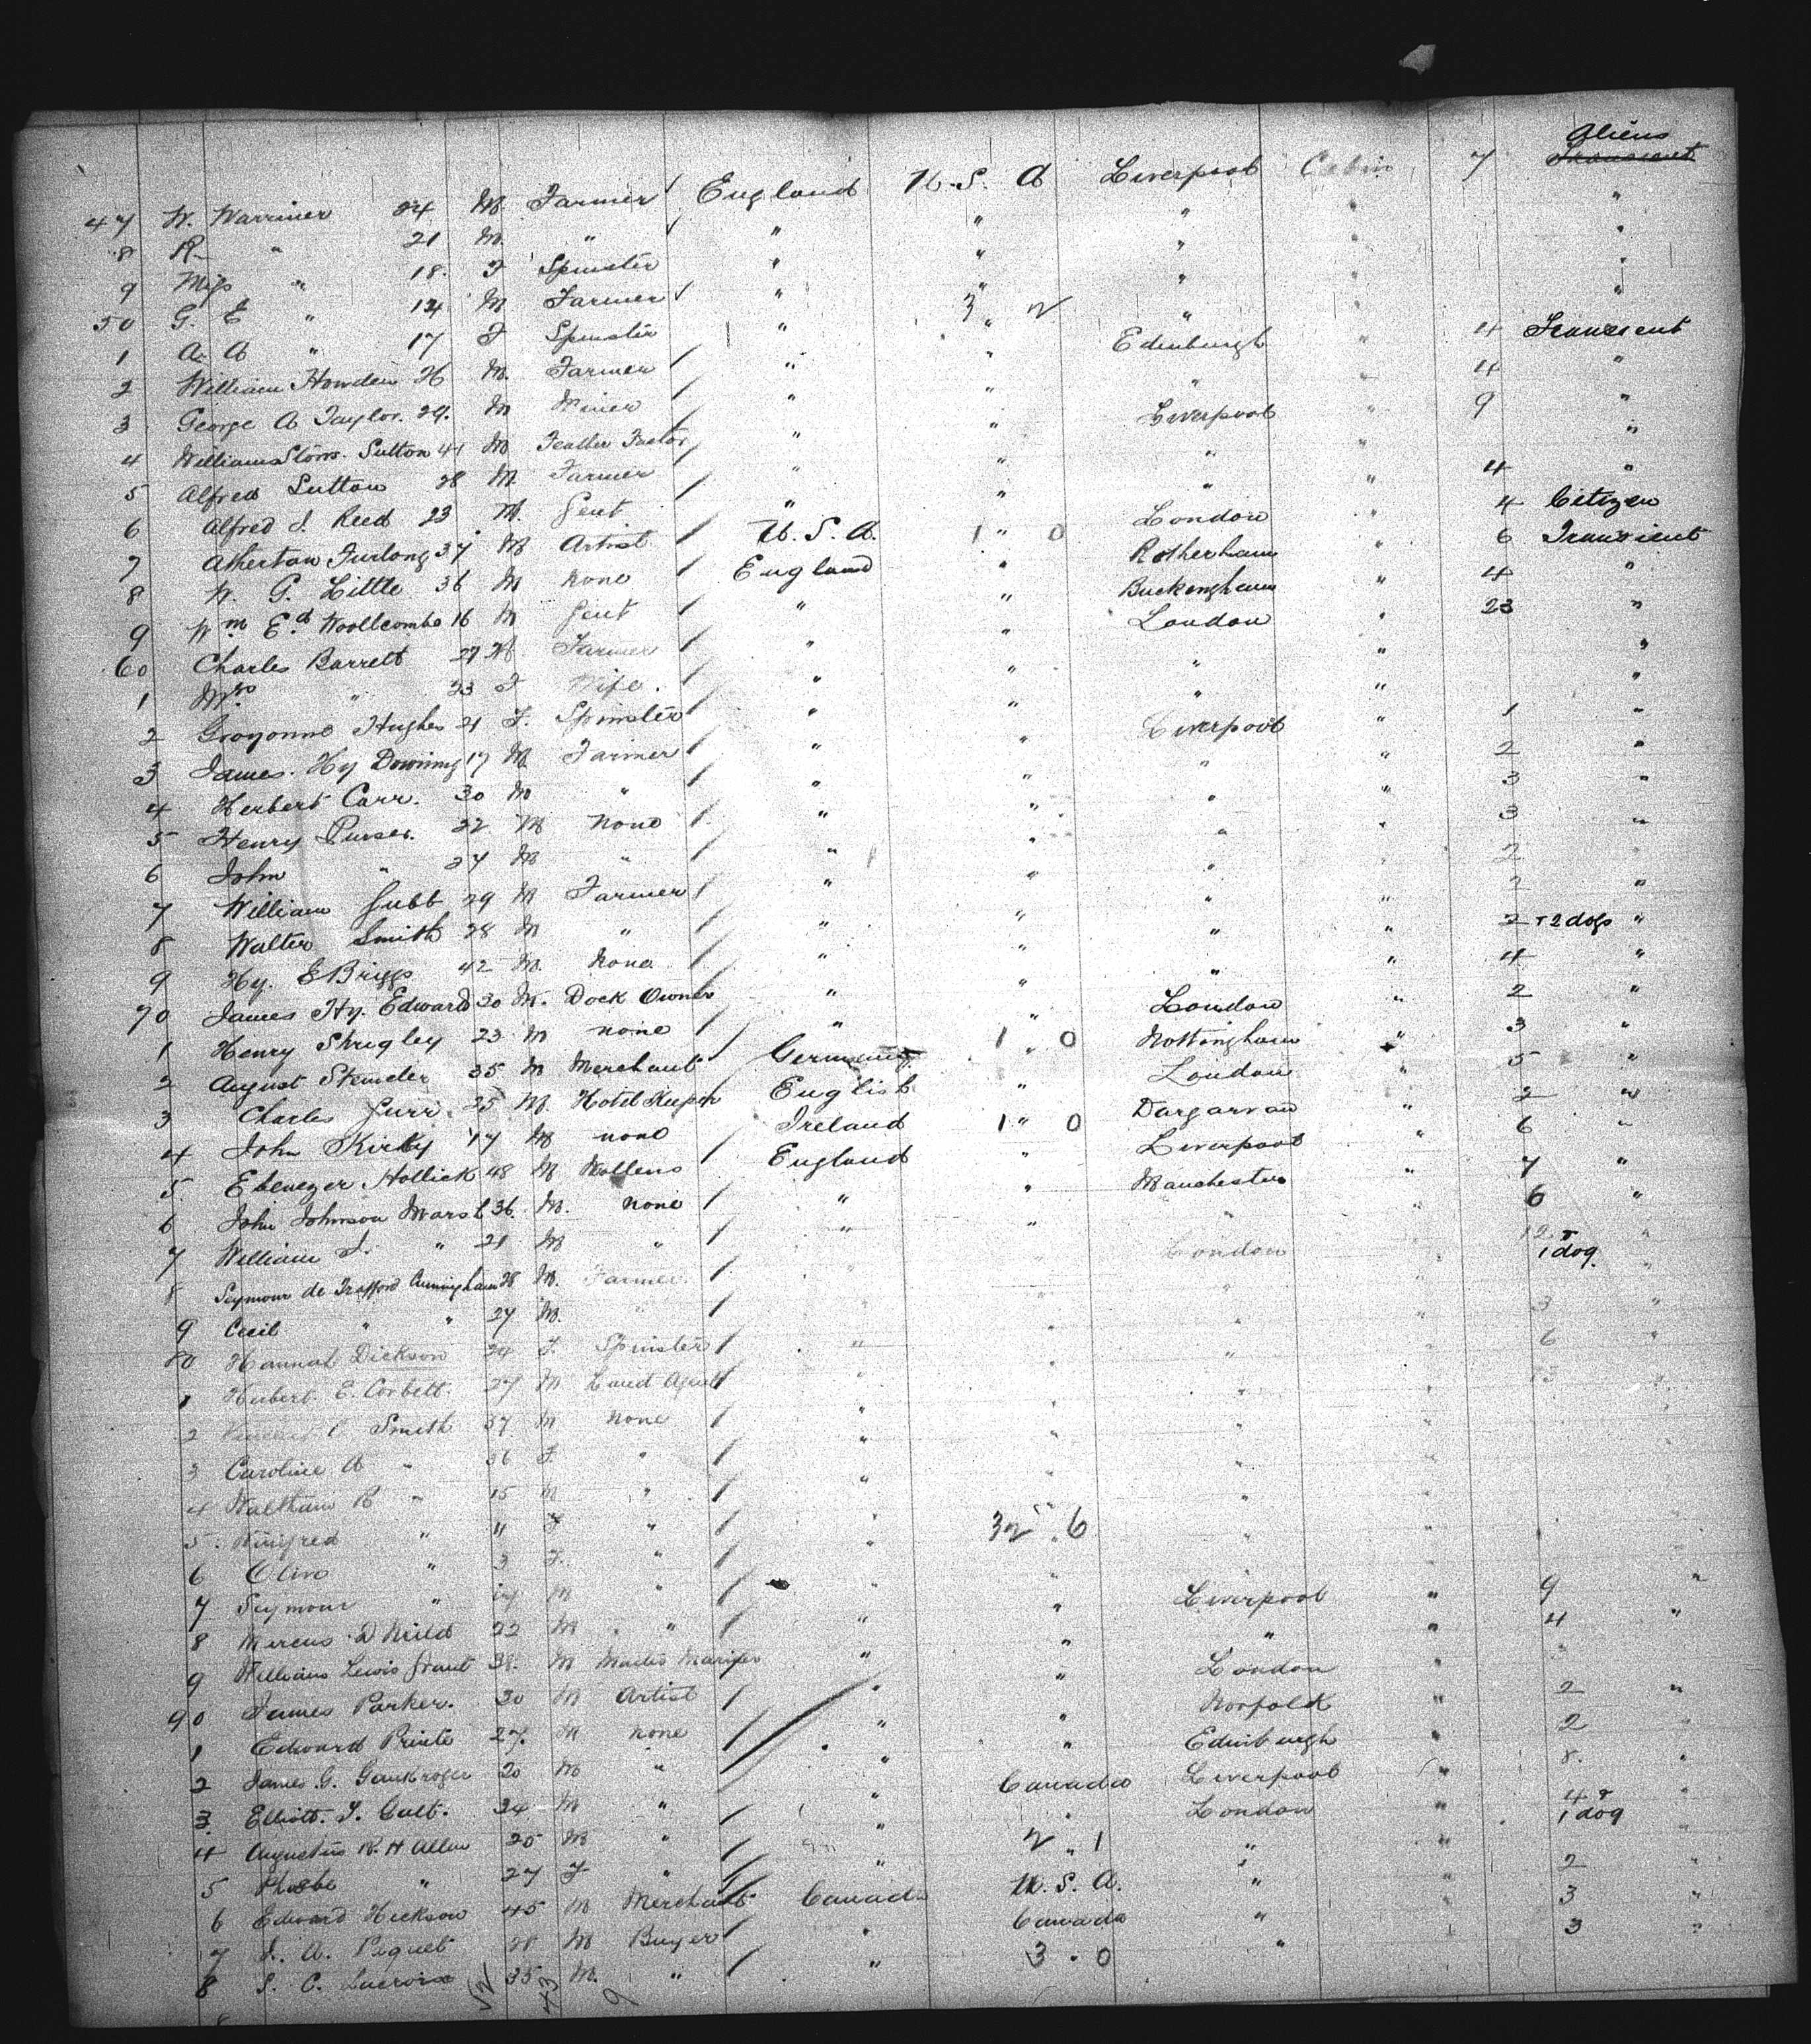 Aliens
47 W. Warriner 24 M Farmer England U.S. A Liverpool Cabin 7 Transient
8 R " 21 M. " " " " " "
9 Miss " 18. F Spinster " " " " "
50 G. E " 14 M Farmer " " " " "
3 2
1 A. A " 17 F Spinster " " " " "
2 William Howden M. Farmer " " Edinburgh " 4 Transient
3 George A Taylor. 29. M " " " " 4 "
4 Sutton 41 M Feather Factor " " Liverpool " 9 "
5 Alfred Sutton 28 M. Farmer " " " " "
6 Alfred J. Reed 23 M. Gent " " " " 4 "
7 Atherton Furlong 37 M Artist U.S.A. " London " 4 Citizen
1 0
8 W. G. Little 36 M None England " Rotherham " 6 Transient
9 Wm Ed Woollcombe 16 M Gent " " Buckengham " 4 "
60 Charles Barrett 27 M Farmer " " London " 23 "
1 Mrs " 33 F Wife. " " " " "
2 Hughes 21 F. Spinster " " " " "
3 James. Hy Downing 17 M Farmer " " Liverpool " 1 "
4 Herbert Carr. 30 M " " " " " 2 "
5 Henry Purser. 22 M None " " " " 3 "
6 John " 27 M " " " " " 3 "
7 William Gubb 29 M Farmer " " " " 2 "
8 Walter Smith 28 M " " " " " 2 "
9 Hy. E Briggs 42 M. None " " " " 2 + 2 dogs "
70 James Hy. Edward 30 M. Dock Owner " " " " 4 "
1 Henry Shrigley 23 M none " " London " 2 "
2 August 35 M Merchant Germany " Nottingham " 3 "
1 0
3 Charles Gurr. 25 M. Hotel Keeper English " London " 5 "
4 John Kirby 17 M none Ireland " Dargarvan " 2 "
1 0
5 Ebenezer Hollick 48 M England " Liverpool " 6 "
6 John Johnson 36. M. None " " Manchester " 7 "
7 William J. " 21 M " " " " " 6 "
8 Seymour de Trafford Cunningham 28 M. Farmer. " " London " 12 + 1 dog. "
9 Cecil " " 27 M. " " " " " "
80 Hannah Dickson 24 F. Spinster " " " " 3 "
1 Hubert. E. Corbett. 27 M Land Agent " " " " 6 "
2 Smith 37 M None " " " " 13 "
3 Caroline A " 36 F. " " " " "
4 R " 15 M " " " " "
5 Winifred " 11 F " " " " "
32 6
6 Olive " 3 F. " " " " "
7 Seymour " M " " " " "
8 22 M " " " Liverpool " 9 "
9 William Lewis Grant 38. M " " " " 4 "
90 James Parker. 30 M Artist " " London " 3
1 Edward 27. M none " " Norfolk " 2 "
2 James G. Gaukroger 20 M " " " Edinburgh " 2 "
3 Elliott. T. Galt. 34 M " " Canada Liverpool " 8. "
4 Augustus R. H Allen 25 M " " " London " 4 + 1 dog "
2 1
5 Phoebe " 27 F " " " " " "
6 Edward Hickson 45 M Merchant Canada U.S.A. " " 2 "
7 J. A. 28 M Buyer " Canada " " 3 "
8 S. C. Lacroix 35 M. " " " " 3 "
3 0
52 43 9